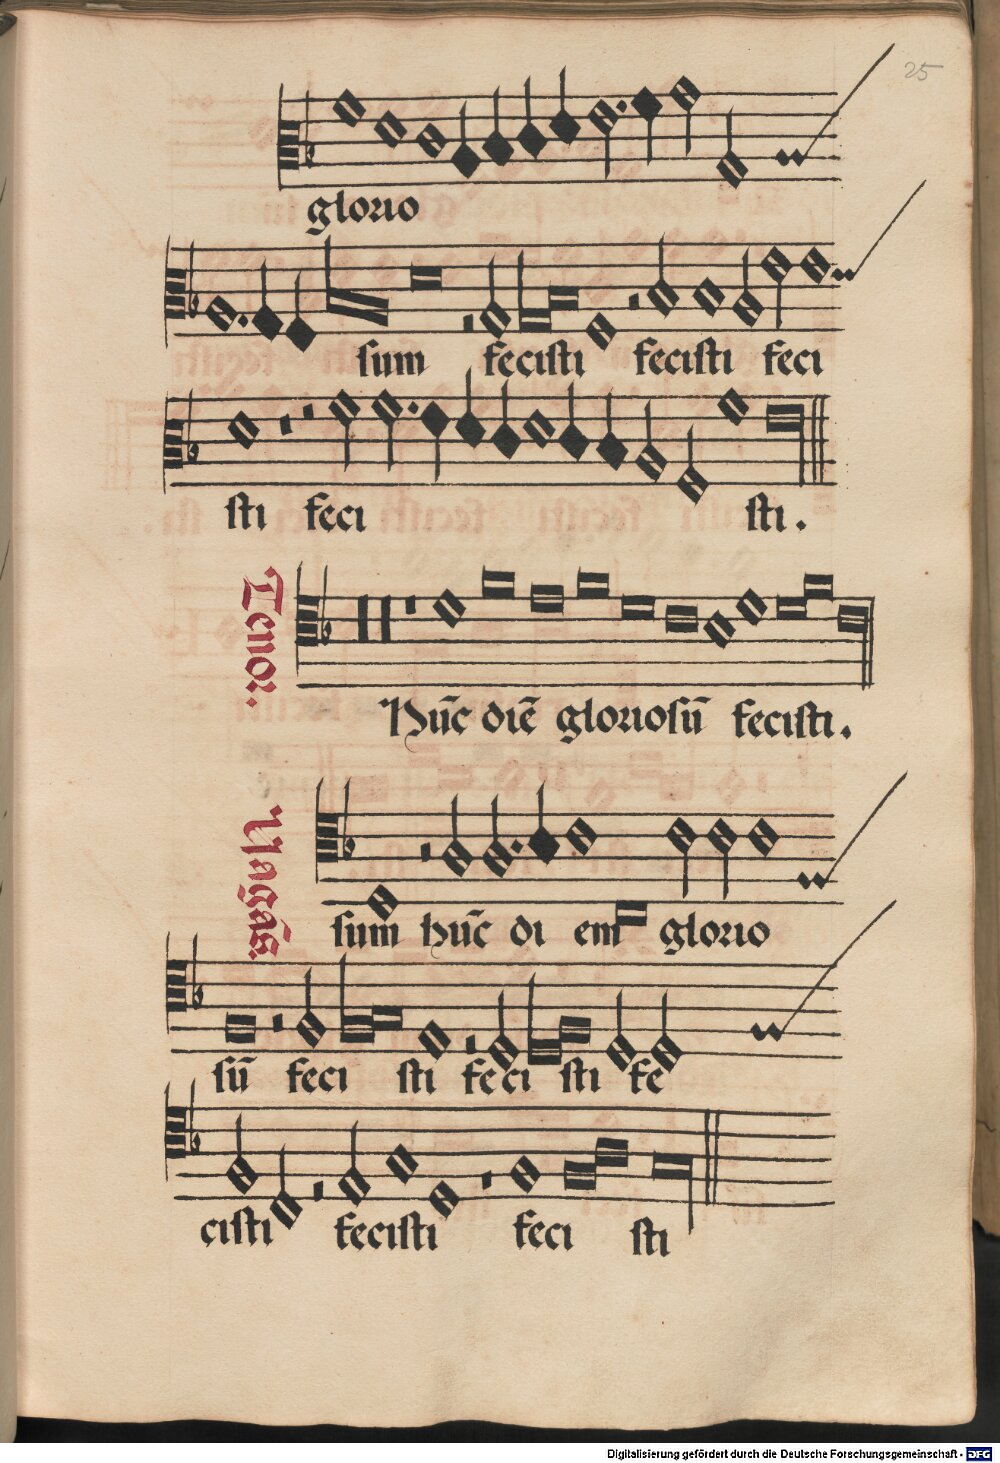 25
glorio
sum fecisti fecisti feci
sti feci sti.
Tenor.
Hūc diē gloriosū fecisti.
Vagās.
sum hūc di em glorio
sū feci sti feci sti fe
cisti fecisti feci sti
Digitalisierung gefördert durch die Deutsche Forschungsgemeinschaft - DFG